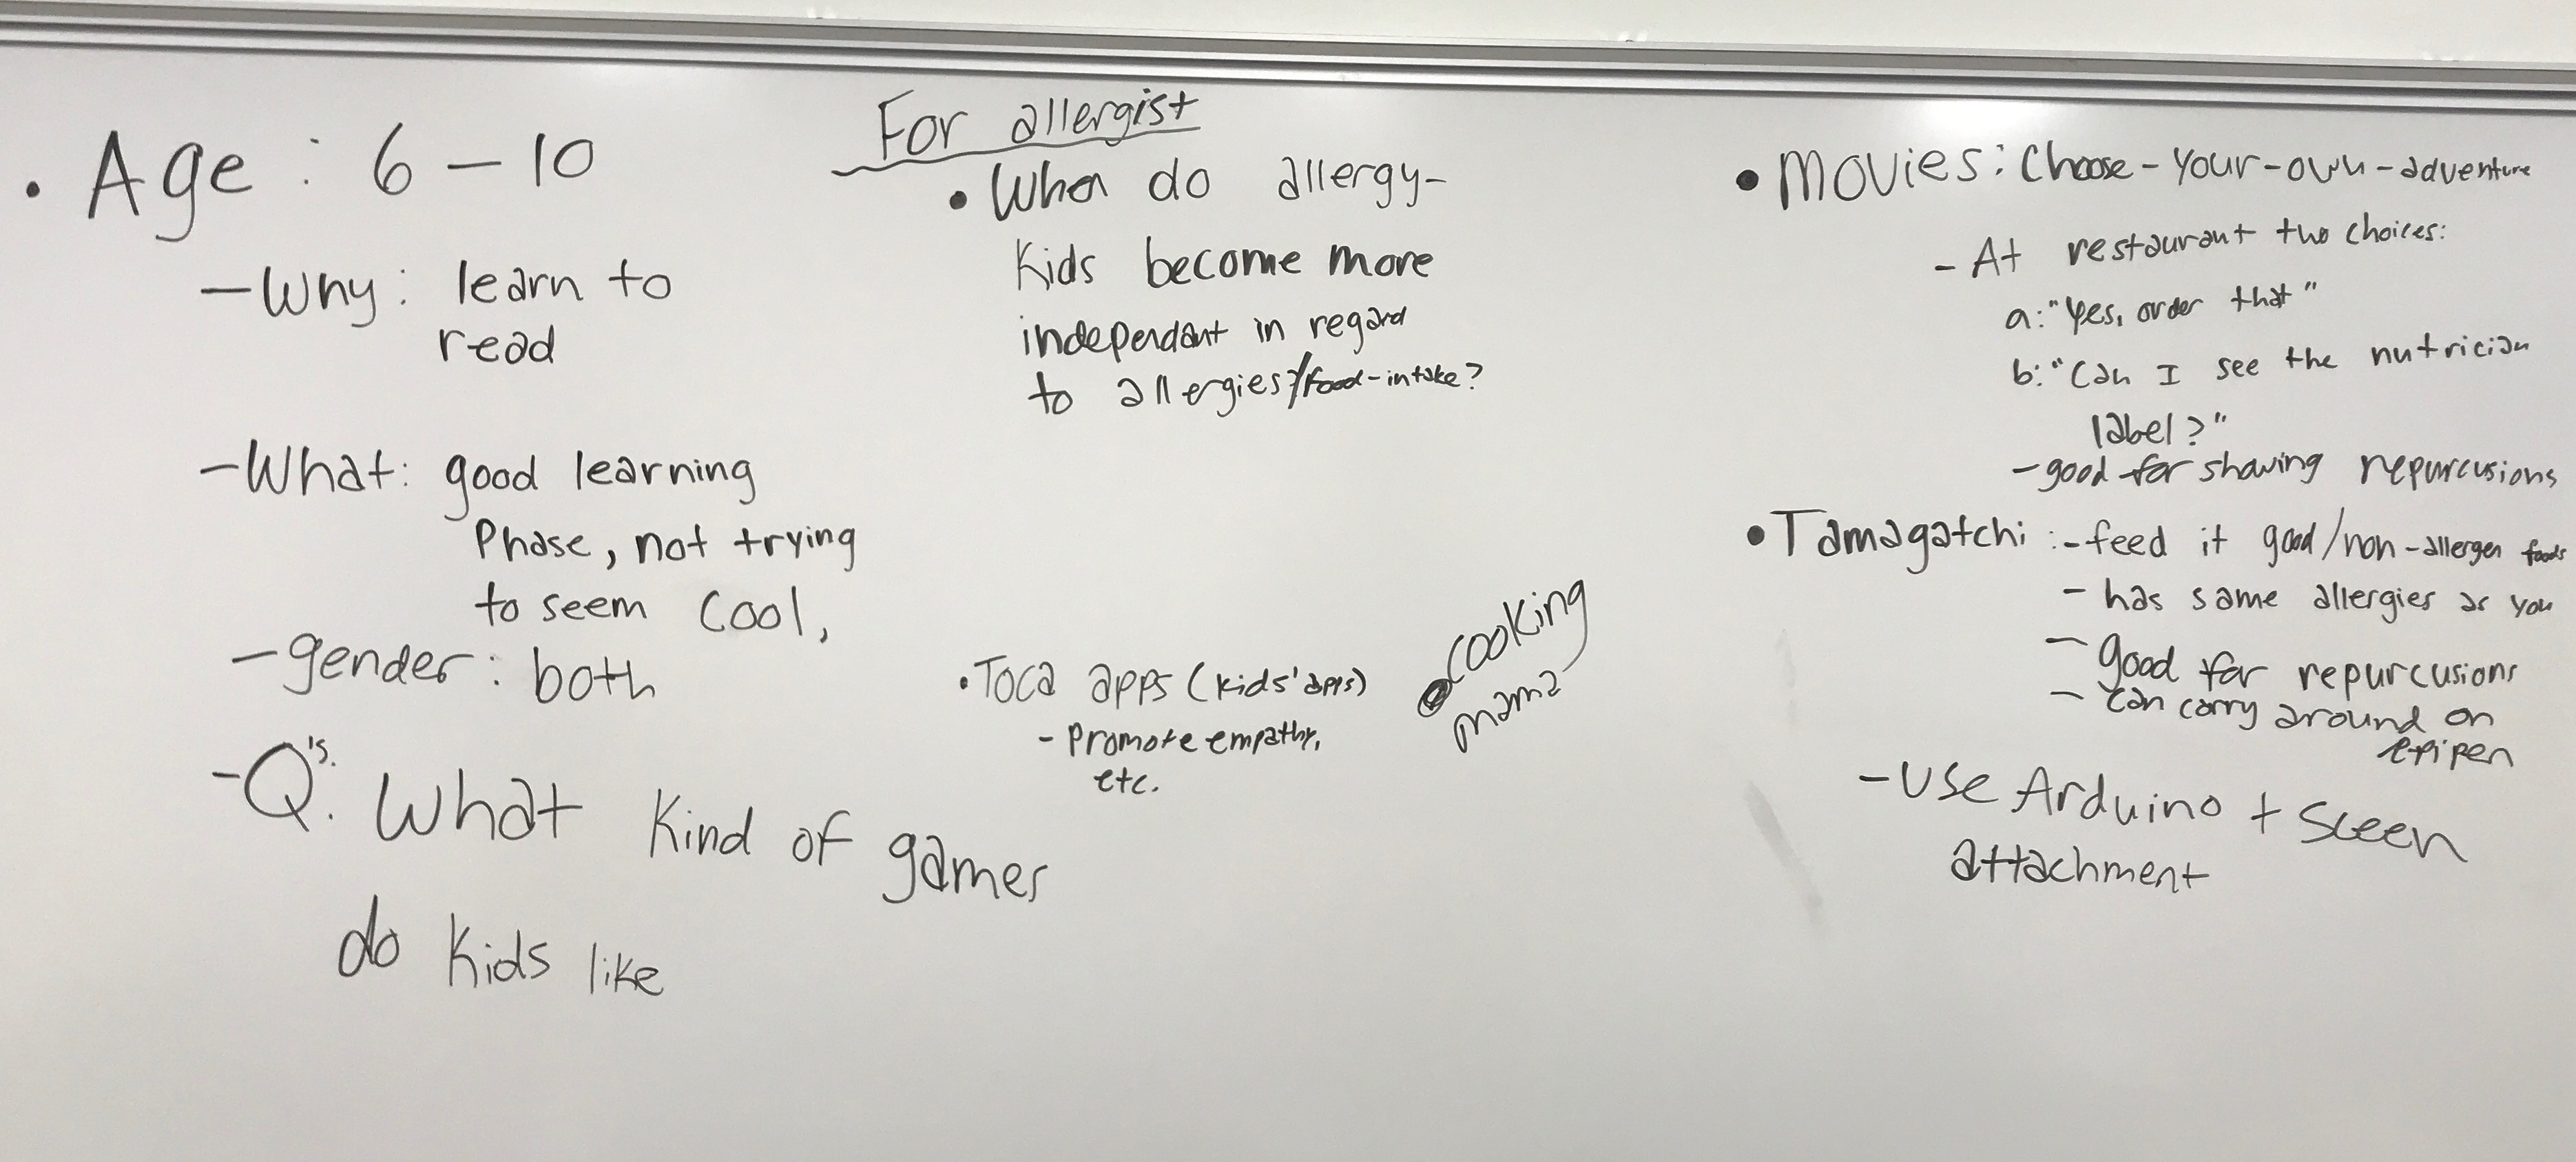 • Age: 6-10
- Why: learn to
read
- What: good learning
Phase, not trying
to seem cool,
- gender: both
- Q's: What kind of games
do kids like
For allergist
• When do allergy-
kids become more
independant in regard
to allergies?/food-intake?
• Toca apps (kids' apps)
- Promote empathy,
etc.
• cooking
mama
• Movies: Choose-your-own-adventure
- At restaurant two choices:
a: "Yes, order that"
b: "Can I see the nutrician
label?"
- good for showing repurcusions
• Tamagatchi: - feed it good/non-allergen foods
- has same allergies as you
- good for repurcusions
- can carry around on
epipen
- use Arduino + Sceen
attachment